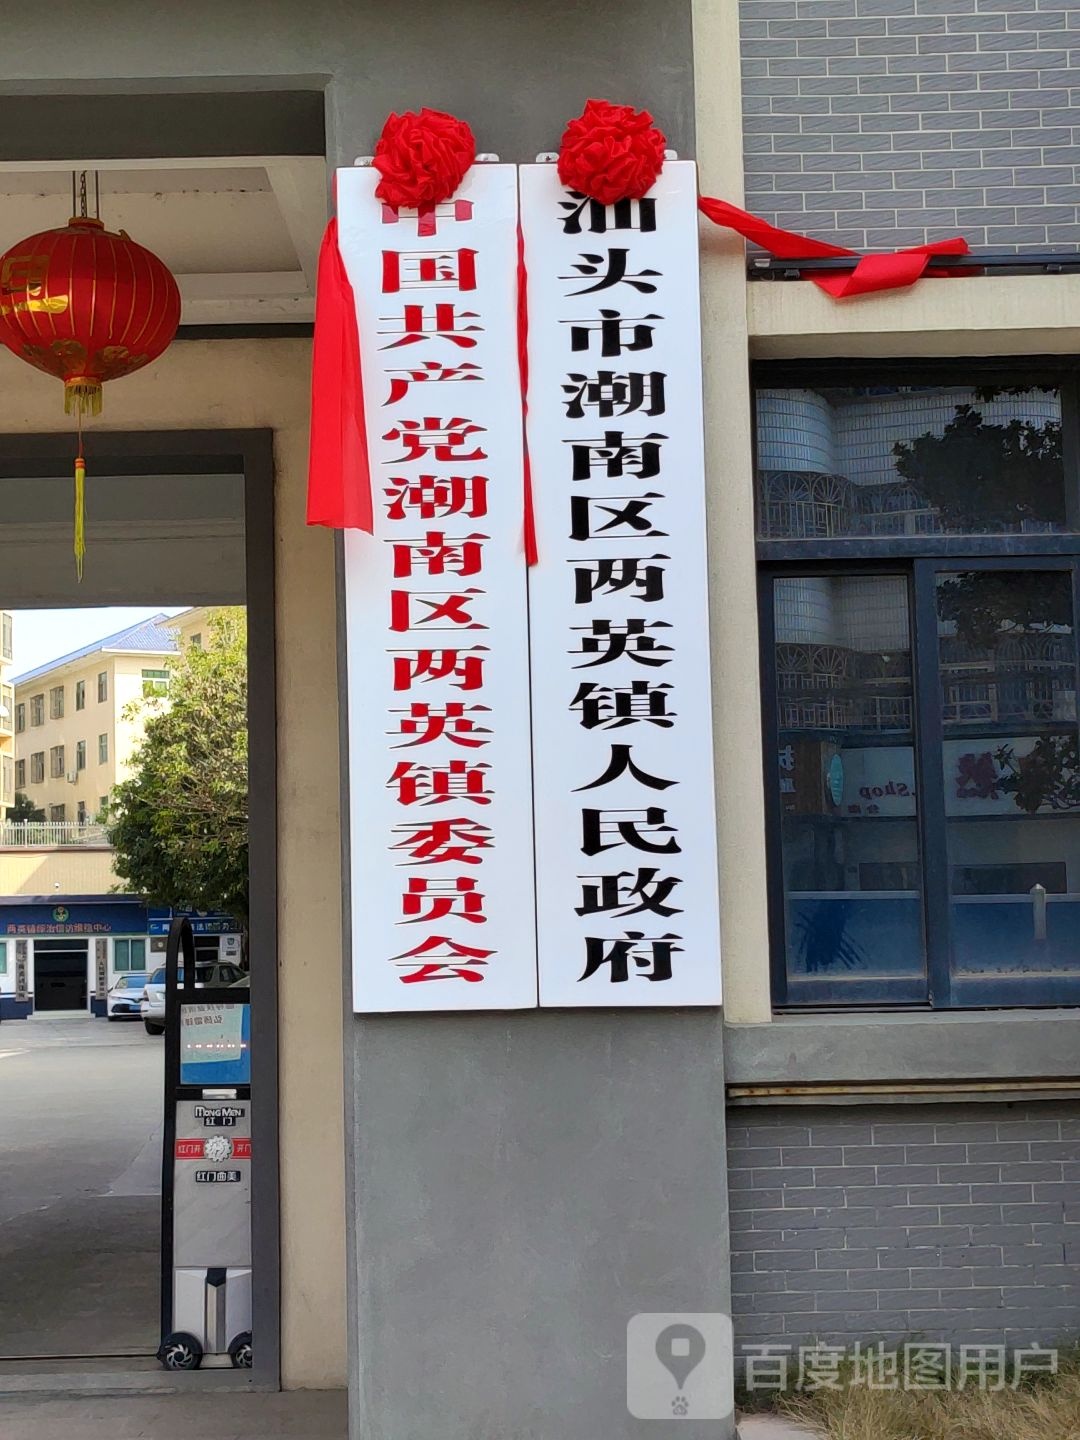 中国共产党潮南区两英镇委员会
汕头市潮南区两英镇人民政府
两英镇综治信访维稳中心
MONGMEN
红门
红门开 开门
红门曲美
Shop
百度地图用户